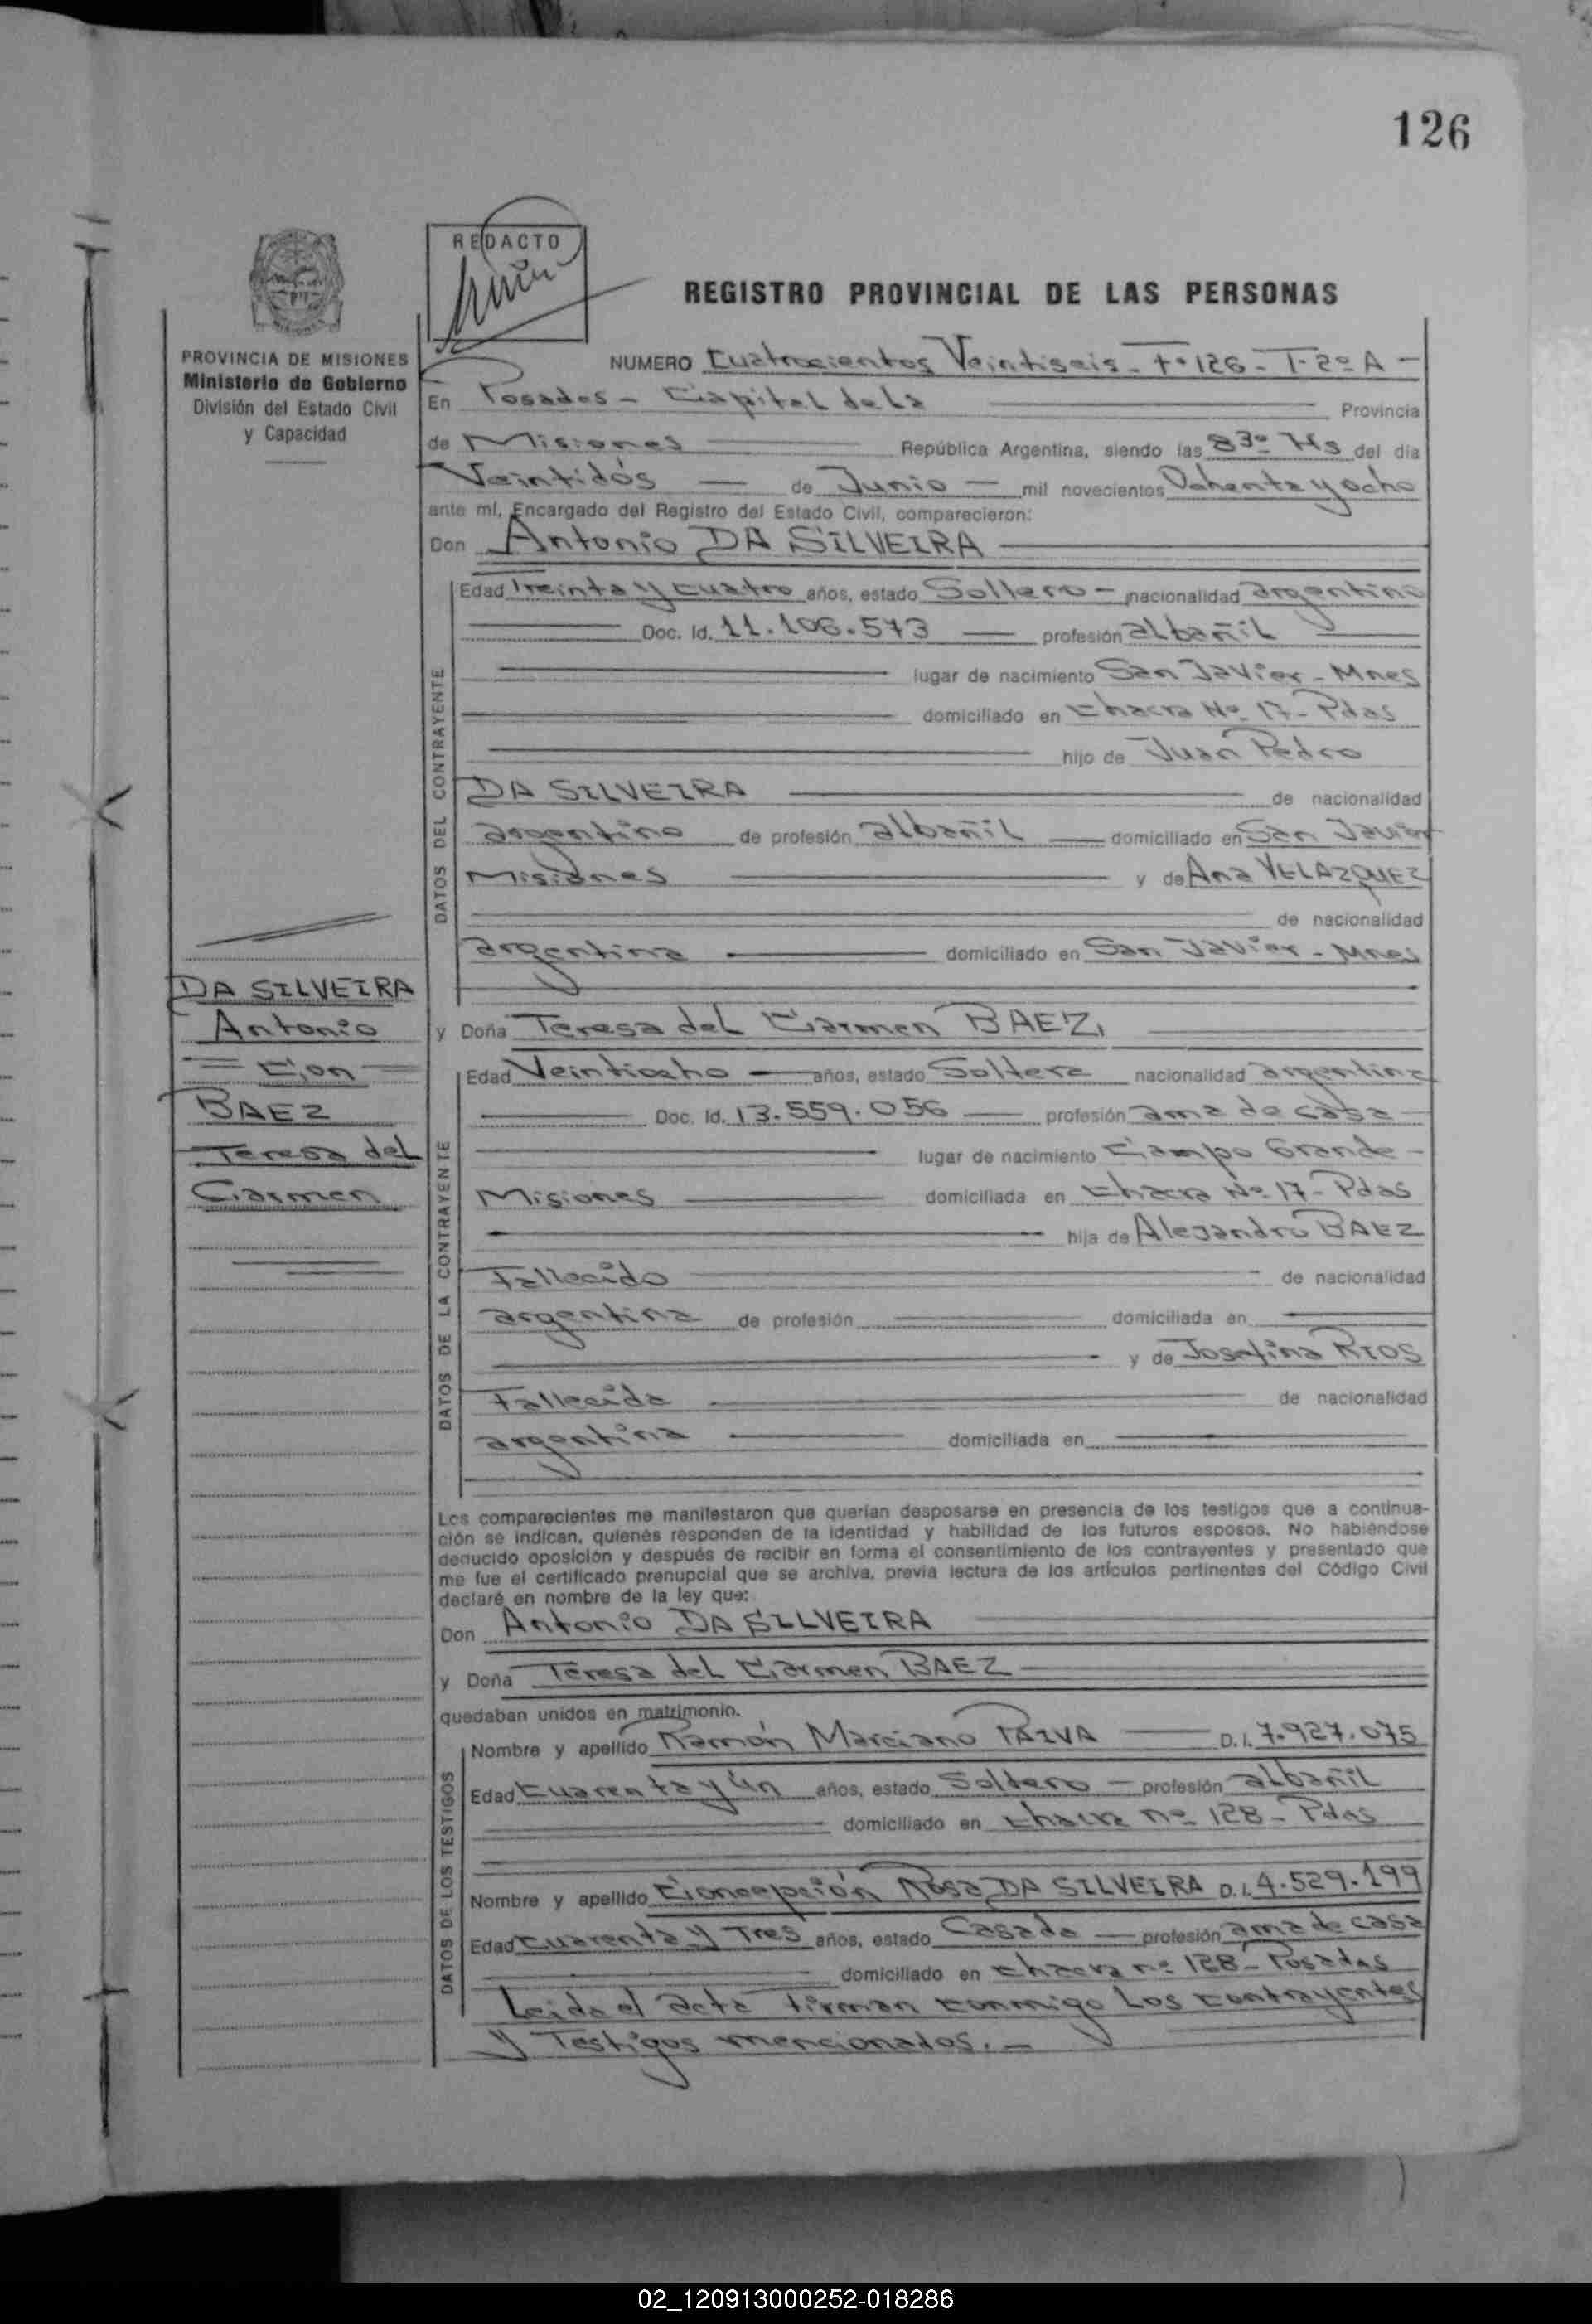 126
REDACTO
REGISTRO PROVINCIAL DE LAS PERSONAS
PROVINCIA DE MISIONES
Ministerio de Gobierno
División del Estado Civil
y Capacidad
NUMERO Cuatrocientos Veintiseis - Fº 126 - T. 2º A -
En Posadas - Capital de la Provincia
de Misiones República Argentina, siendo las 8 30 Hs del día
Veintidós - de Junio - mil novecientos Ochenta y ocho
ante mí, Encargado del Registro del Estado Civil, comparecieron:
Don Antonio DA SILVEIRA
DATOS DEL CONTRAYENTE
Edad Treinta y cuatro años, estado Soltero - nacionalidad argentino
Doc. Id. 11.106.573 profesión albañil
lugar de nacimiento San Javier - Mnes
domiciliado en chacra Nº 17 - Pdas
hijo de Juan Pedro
DA SILVEIRA de nacionalidad
argentino de profesión albañil domiciliado en San Javier
Misiones y de Ana VELAZQUEZ
de nacionalidad
argentina domiciliado en San Javier - Mnes
DA SILVEIRA
Antonio
= Con =
BAEZ
Teresa del
Carmen
y Doña Teresa del Carmen BAEZ
DATOS DE LA CONTRAYENTE
Edad Veintiocho años, estado Soltera nacionalidad argentina
Doc. Id. 13.559.056 profesión ama de casa
lugar de nacimiento Campo Grande -
Misiones domiciliada en chacra Nº 17 - Pdas
hija de Alejandro BAEZ
Fallecido de nacionalidad
argentina de profesión domiciliada en
y de Josefina RIOS
Fallecida de nacionalidad
argentina domiciliada en
Los comparecientes me manifestaron que querían desposarse en presencia de los testigos que a continua-
ción se indican, quienes responden de la identidad y habilidad de los futuros esposos. No habiéndose
deducido oposición y después de recibir en forma el consentimiento de los contrayentes y presentado que
me fue el certificado prenupcial que se archiva, previa lectura de los artículos pertinentes del Código Civil
declaré en nombre de la ley que:
Don Antonio DA SILVEIRA
y Doña Teresa del Carmen BAEZ
quedaban unidos en matrimonio.
DATOS DE LOS TESTIGOS
Nombre y apellido Ramón Marciano PAIVA D.I. 7.927.075
Edad cuarenta y ún años, estado Soltero - profesión albañil
domiciliado en chacra nº 128 - Pdas
Nombre y apellido Concepción Rosa DA SILVEIRA D.I. 4.529.199
Edad cuarenta y Tres años, estado Casada - profesión ama de casa
domiciliado en chacra nº 128 - Posadas
Leida el acta firman conmigo Los contrayentes
y Testigos mencionados. -
02_120913000252-018286